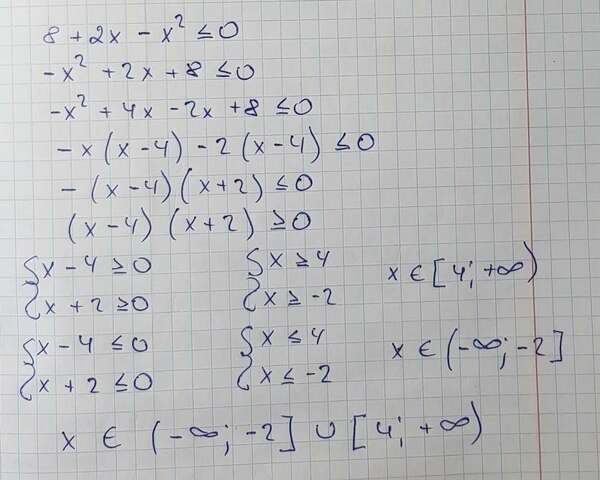 8 + 2x - x² ≤ 0
-x² + 2x + 8 ≤ 0
-x² + 4x - 2x + 8 ≤ 0
-x (x - 4) - 2 (x - 4) ≤ 0
- (x - 4) (x + 2) ≤ 0
(x - 4) (x + 2) ≥ 0
{ x - 4 ≥ 0 { x ≥ 4 x ∈ [4; +∞)
{ x + 2 ≥ 0 { x ≥ -2
{ x - 4 ≤ 0 { x ≤ 4 x ∈ (-∞; -2]
{ x + 2 ≤ 0 { x ≤ -2
x ∈ (-∞; -2] ∪ [4; +∞)